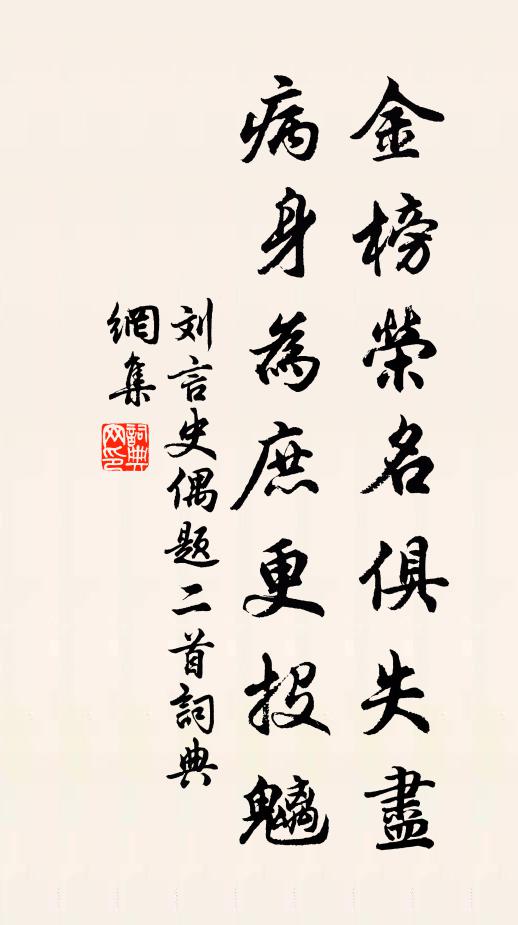 金榜榮名俱失盡
病身為庶更投魑
刘言史偶题二首詞典
網集
詞典
网印